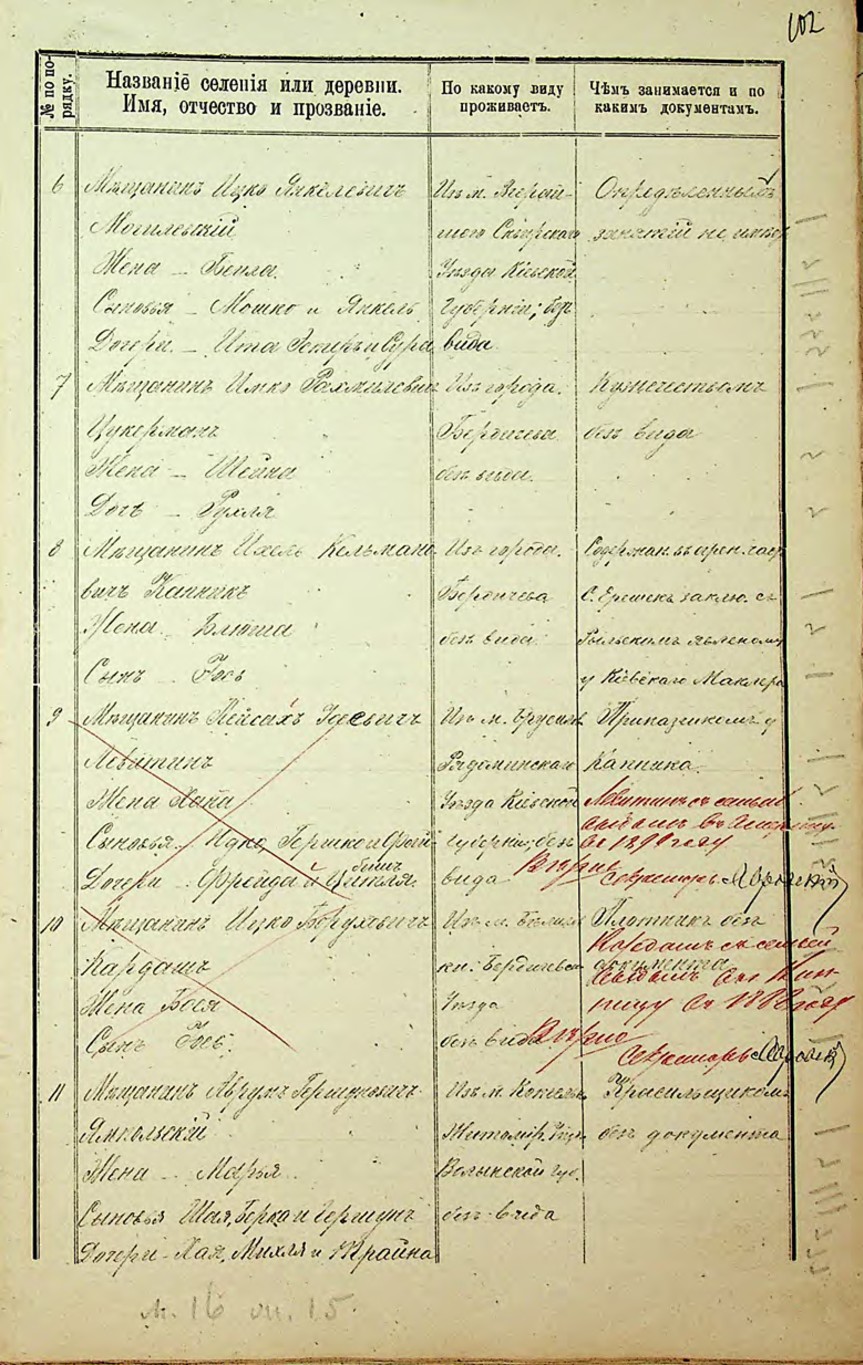 102
№ по по-
рядку.
Названіе селенія или деревни.
Имя, отчество и прозваніе.
По какому виду
проживаетъ.
Чѣмъ занимается и по
какимъ документамъ.
6 Мѣщанинъ Ицко Янкелевичъ
Могилевскій
Жена – Бейла
Сыновья – Мошко и Янкель
Дочери – Ита Эстиръ и Сура
Изъ м.
Сквирскаго
Уѣзда Кіевской
Губерніи; безъ
вида
Опредѣленныхъ
занятій не имѣет
7 Мѣщанинъ Ицко Рахмилевич
Цукерманъ
Жена – Шейна
Дочь – Рухля
Изъ города
Бердичева
безъ вида.
Кузнечествомъ
безъ вида
8 Мѣщанинъ Ихель Кельмано-
вичъ Канникъ
Жена Блюма
Сынъ Іось
Изъ города
Бердичева
безъ вида
Содержан. въ арен.
С. заклю. съ
у Кіевскаго Маклера
9 Мѣщанинъ Пейсахъ Іосевичъ
Левитинъ
Жена Хана
Сыновья Ицко, Гершко и
Дочери Фрейда и Ципля
Изъ м. Брусилов
Радомысльскаго
Уѣзда Кіевской
Губерніи; безъ
вида
Приказчикомъ у
Канника.
Левитинъ съ семьей
выбылъ въ Америку
въ году
Вѣрно
Секретарь
10 Мѣщанинъ Ицко Боруховичъ
Кардашъ
Жена Бося
Сынъ Іось.
Изъ м.
Бердичевск
Уѣзда
безъ вида
Плотникъ безъ
документа
Кардашъ съ семьей
выбылъ въ
въ году
Вѣрно
Секретарь
11 Мѣщанинъ Аврумъ Гершуновичъ
Ямпольскій
Жена – Марья
Сыновья Шая, Берка и Гершунъ
Дочери – Хая, Михля и Крайна
Изъ м.
Житомір. Уѣз.
Волынской Губ.
безъ вида
Красильщикомъ
безъ документа
л. 16 оп. 15.